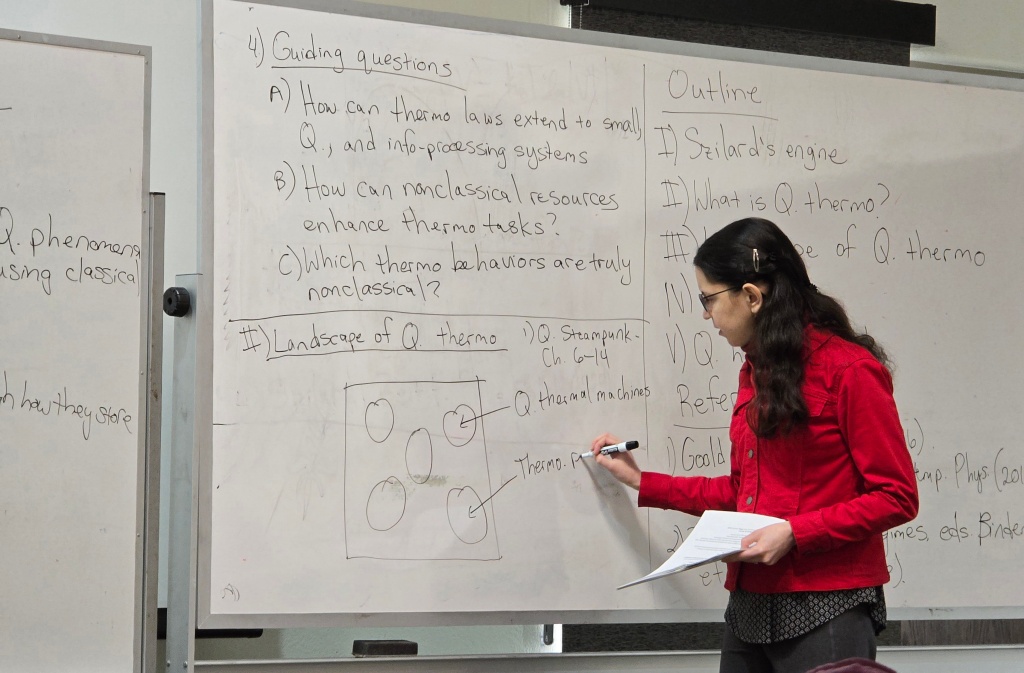 Q. phenomena
using classical
how they store
4) Guiding questions
A) How can thermo laws extend to small,
Q., and info-processing systems
B) How can nonclassical resources
enhance thermo tasks?
C) Which thermo behaviors are truly
nonclassical?
II) Landscape of Q. thermo
1) Q. Steampunk -
Ch. 6-14
Q. thermal machines
Thermo.
Outline
I) Szilard's engine
II) What is Q. thermo?
III) of Q. thermo
IV)
V) Q.
1) Goold
Phys. (201
2)
eds. Binder
et